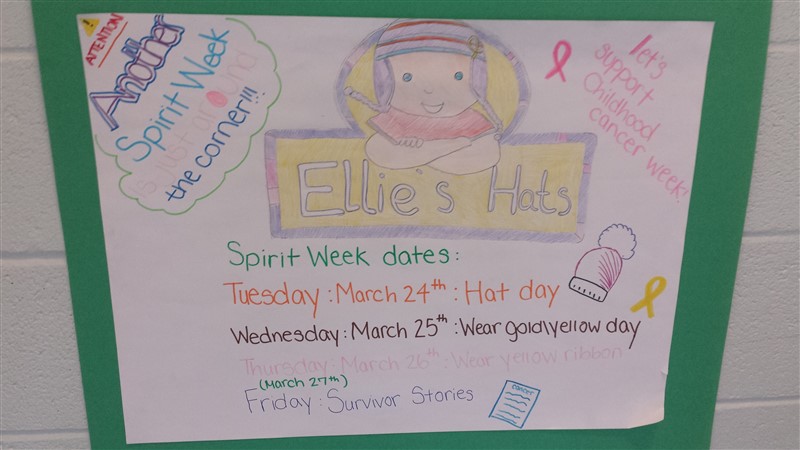 ATTENTION
Another
Spirit Week
is just around
the corner!!!
Let's
support
Childhood
cancer week!
Ellie's Hats
Spirit Week dates:
Tuesday: March 24th: Hat day
Wednesday: March 25th: Wear gold/yellow day
Thursday: March 26th: Wear yellow ribbon
(March 27th)
Friday: Survivor Stories
cancer